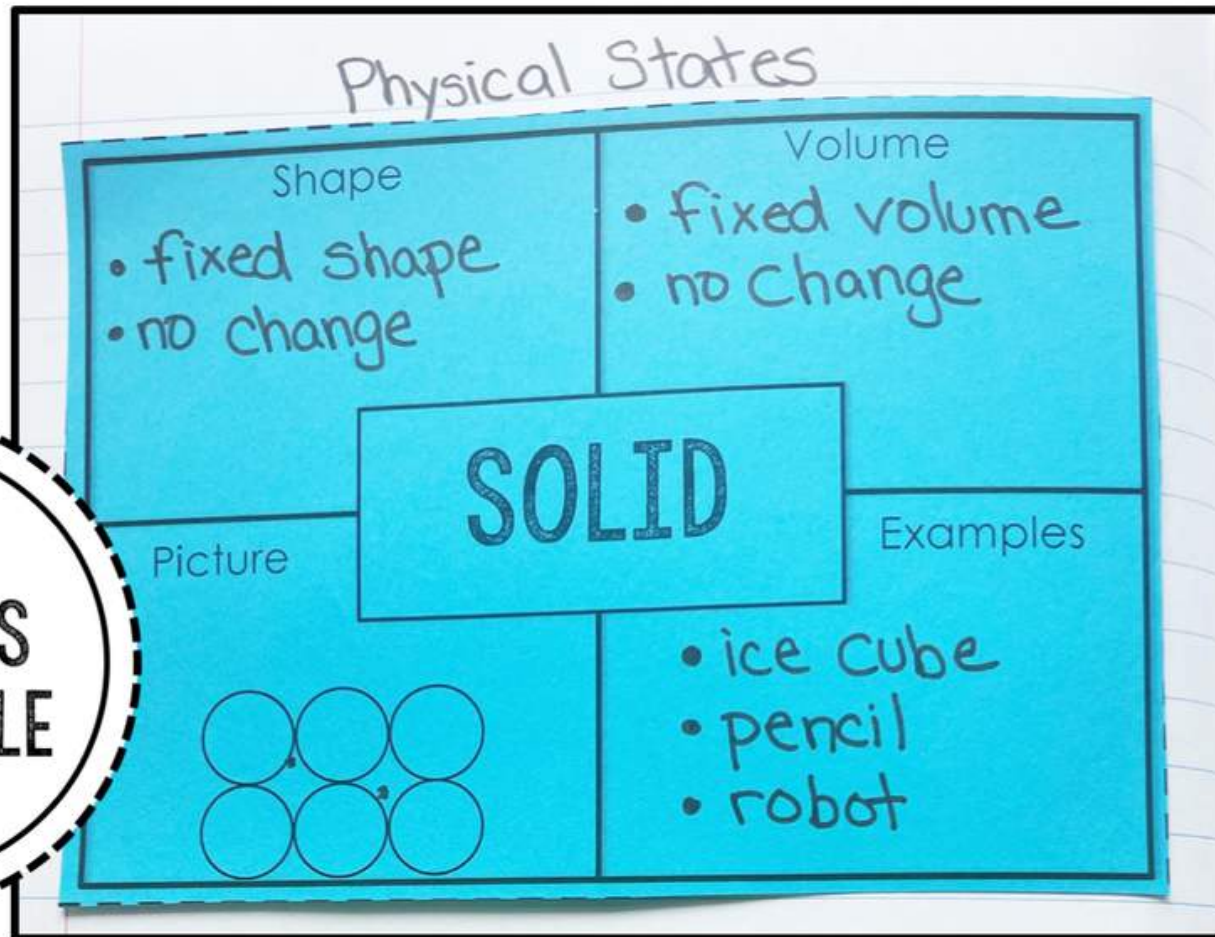 Physical States
Shape
• fixed shape
• no change
Volume
• fixed volume
• no change
SOLID
Picture
Examples
• ice cube
• pencil
• robot